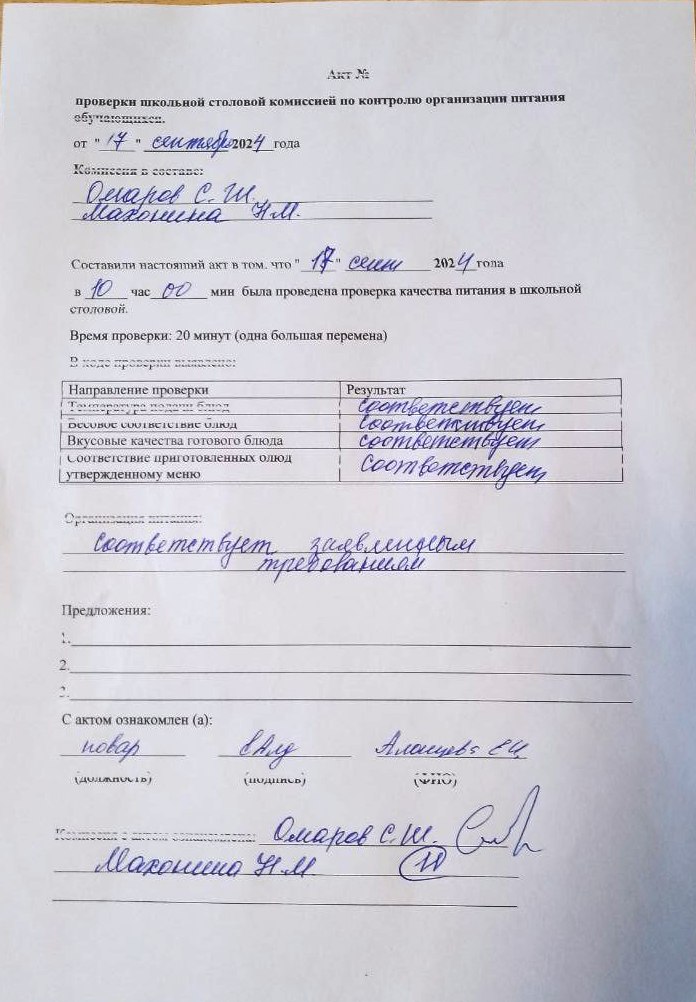 Акт №
проверки школьной столовой комиссией по контролю организации питания
обучающихся.
от "17" сентября 2024 года
Комиссия в составе:
Омаров С. Ш.
Махонина Н.М.
Составили настоящий акт в том, что "17" сент 2024 года
в 10 час 00 мин была проведена проверка качества питания в школьной
столовой.
Время проверки: 20 минут (одна большая перемена)
В ходе проверки выявлено:
Направление проверки Результат
Температура подачи блюд соответствует
Весовое соответствие блюд соответствует
Вкусовые качества готового блюда соответствует
Соответствие приготовленных блюд
утвержденному меню соответствует
Организация питания:
соответствует заявленным
требованиям
Предложения:
1.
2.
3.
С актом ознакомлен (а):
повар
(должность) (подпись) (ФИО)
Комиссия с актом ознакомлена: Омаров С. Ш.
Махонина Н М